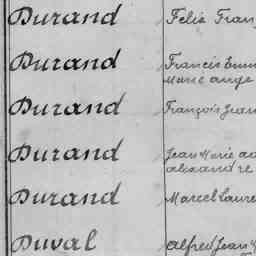 Durand Félix Fran
Durand Francis Emm
Marie ange
Durand François Jean
Durand Jean Marie
alexandre
Durand Marcel Laure
Duval alfred Jean